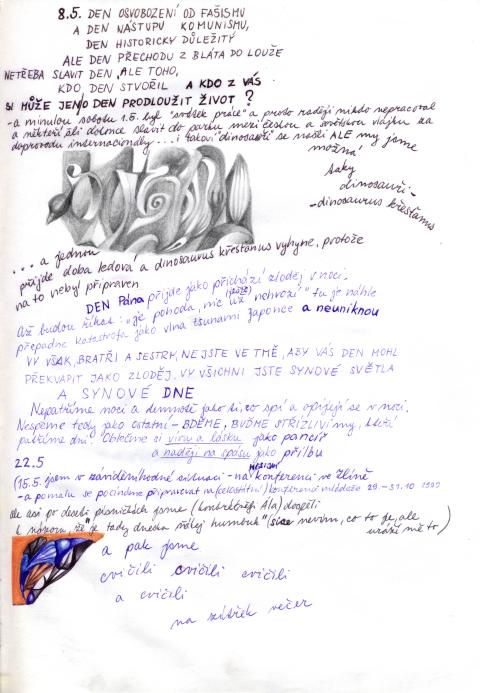 8.5. DEN OSVOBOZENÍ OD FAŠISMU
A DEN NÁSTUPU KOMUNISMU,
DEN HISTORICKY DŮLEŽITÝ
ALE DEN PŘECHODU Z BLÁTA DO LOUŽE
NETŘEBA SLAVIT DEN, ALE TOHO,
KDO DEN STVOŘIL A KDO Z VÁS
SI MŮŽE JEN/O DEN PRODLOUŽIT ŽIVOT ?
- a minulou sobotu 1.5. byl "svátek práce" a proto raději nikdo nepracoval
a někteří šli dokonce slavit do parku mezi českou a sovětskou vlajku za
doprovodu internacionály... i takoví "dinosauři" se našli ALE my jsme
možná
taky
dinosauři -
- dinosaurus křesťanus
... a jednou
přijde doba ledová a dinosaurus křesťanus vyhyne, protože
na to nebyl připraven
DEN Pána přijde jako přichází zloděj v noci.
Až budou říkat: "je pohoda, nic už nehrozí" tu je náhle
přepadne katastrofa jako vlna tsunami Japonce a neuniknou
VY VŠAK, BRATŘI A SESTRY, NEJSTE VE TMĚ, ABY VÁS DEN MOHL
PŘEKVAPIT JAKO ZLODĚJ. VY VŠICHNI JSTE SYNOVÉ SVĚTLA
A SYNOVÉ DNE
Nepatříme noci a temnotě jako ti, co spí a opíjejí se v noci.
Nespěme tedy jako ostatní - BDĚME, BUĎME STŘÍZLIVÍ my, kteří
patříme dni! Oblečme si víru a lásku jako pancíř
a naději na spásu jako přilbu
22.5
(15.5. jsem v záviděníhodné situaci - na konferenci ve Zlíně
- a pomalu se počínáme připravovat na (celostátní) konferenci mládeže 29. - 31.10 1999
ale asi po deseti písničkách jsme (konkrétněji Ala) dospěli
k názoru, že "je tady dneska nějaký humbuk" (sice nevím, co to je, ale
uráží mě to)
a pak jsme
cvičili cvičili cvičili
a cvičili
na zítřek večer